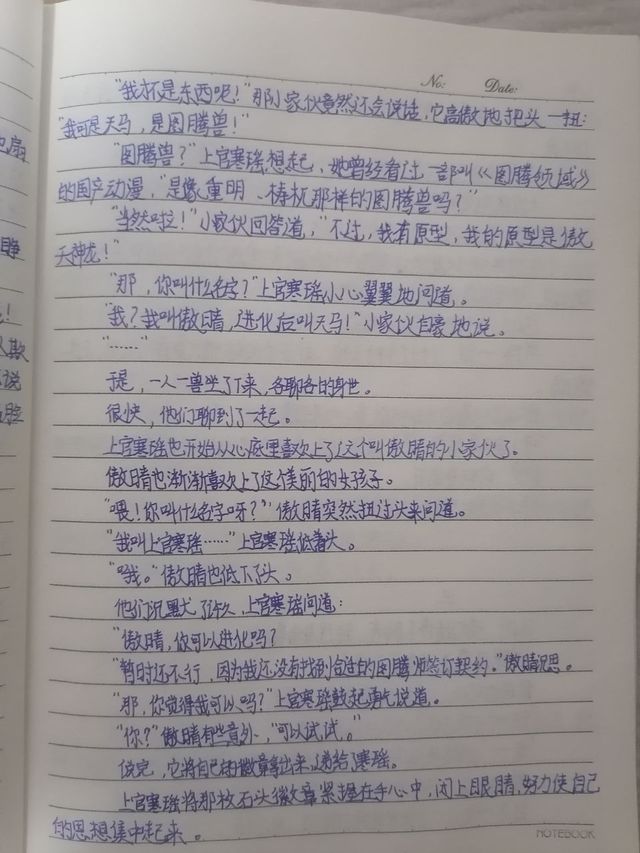 No: Date:
"我不是东西呢!"那小家伙竟然还会说话,它高傲地把头一扭:
"我可是天马,是图腾兽!"
"图腾兽?"上官寒瑶想起,她曾经看过一部叫《图腾领域》
的国产动漫,"是像重明、梼杌那样的图腾兽吗?"
"当然啦!"小家伙回答道,"不过,我有原型,我的原型是傲
天神龙!"
"那,你叫什么名字?"上官寒瑶小心翼翼地问道。
"我?我叫傲晴,进化后叫天马!"小家伙自豪地说。
"……"
于是,一人一兽坐了下来,各聊各的身世。
很快,他们聊到了一起。
上官寒瑶也开始从心底里喜欢上了这个叫傲晴的小家伙了。
傲晴也渐渐喜欢上了这个美丽的女孩子。
"喂!你叫什么名字呀?"傲晴突然扭过头来问道。
"我叫上官寒瑶……"上官寒瑶低着头。
"哦。"傲晴也低下了头。
他们沉默了许久,上官寒瑶问道:
"傲晴,你可以进化吗?
"暂时还不行,因为我还没有找到合适的图腾师签订契约。"傲晴沉思。
"那,你觉得我可以吗?"上官寒瑶鼓起勇气说道。
"你?"傲晴有些意外,"可以试试。"
说完,它将自己的徽章拿出来,递给了寒瑶。
上官寒瑶将那枚石头徽章紧握在手心中,闭上眼睛,努力使自己
的思想集中起来。
NOTEBOOK
扇
睁
!
欺
说
腔